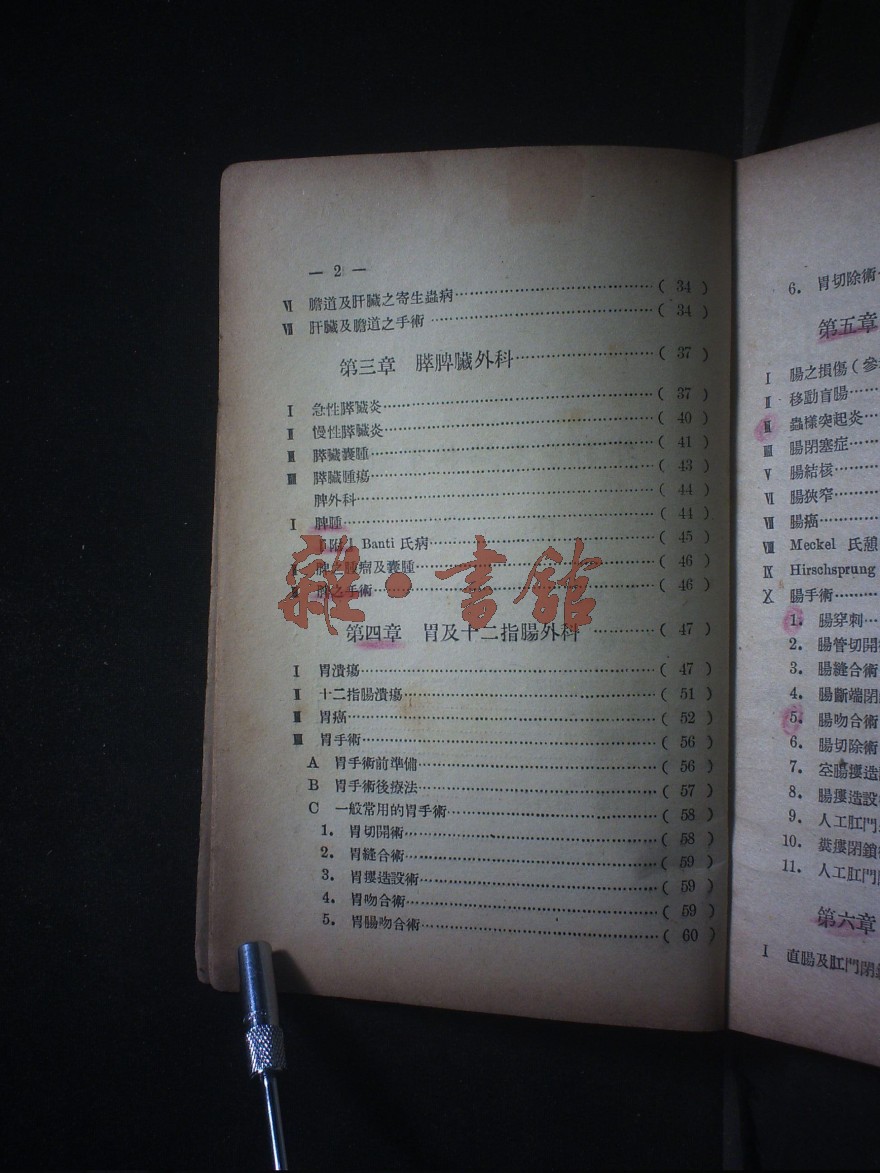 — 2 —
Ⅵ 膽道及肝臟之寄生蟲病………( 34 )
Ⅶ 肝臟及膽道之手術………( 34 )
第三章 膵脾臟外科………( 37 )
Ⅰ 急性膵臟炎………( 37 )
Ⅱ 慢性膵臟炎………( 40 )
Ⅲ 膵臟囊腫………( 41 )
Ⅳ 膵臟腫瘍………( 43 )
脾外科………( 44 )
Ⅰ 脾腫………( 44 )
〔附〕 Banti 氏病………( 45 )
Ⅱ 脾之膿瘍及囊腫………( 46 )
Ⅲ 脾之手術………( 46 )
第四章 胃及十二指腸外科………( 47 )
Ⅰ 胃潰瘍………( 47 )
Ⅱ 十二指腸潰瘍………( 51 )
Ⅲ 胃癌………( 52 )
Ⅳ 胃手術………( 56 )
A 胃手術前準備………( 56 )
B 胃手術後療法………( 57 )
C 一般常用的胃手術………( 58 )
1. 胃切開術………( 58 )
2. 胃縫合術………( 59 )
3. 胃攖造設術………( 59 )
4. 胃吻合術………( 59 )
5. 胃腸吻合術………( 60 )
雜·書館
6. 胃切除術
第五章
Ⅰ 腸之損傷(參
Ⅱ 移動盲腸……
Ⅲ 蟲樣突起炎…
Ⅳ 腸閉塞症……
Ⅴ 腸結核……
Ⅵ 腸狹窄……
Ⅶ 腸癌……
Ⅷ Meckel 氏憩
Ⅸ Hirschsprung
Ⅹ 腸手術……
1. 腸穿刺…
2. 腸管切開
3. 腸縫合術
4. 腸斷端閉
5. 腸吻合術
6. 腸切除術
7. 空腸攖造
8. 腸攖造設
9. 人工肛門
10. 糞攖閉鎖
11. 人工肛門
第六章
Ⅰ 直腸及肛門閉